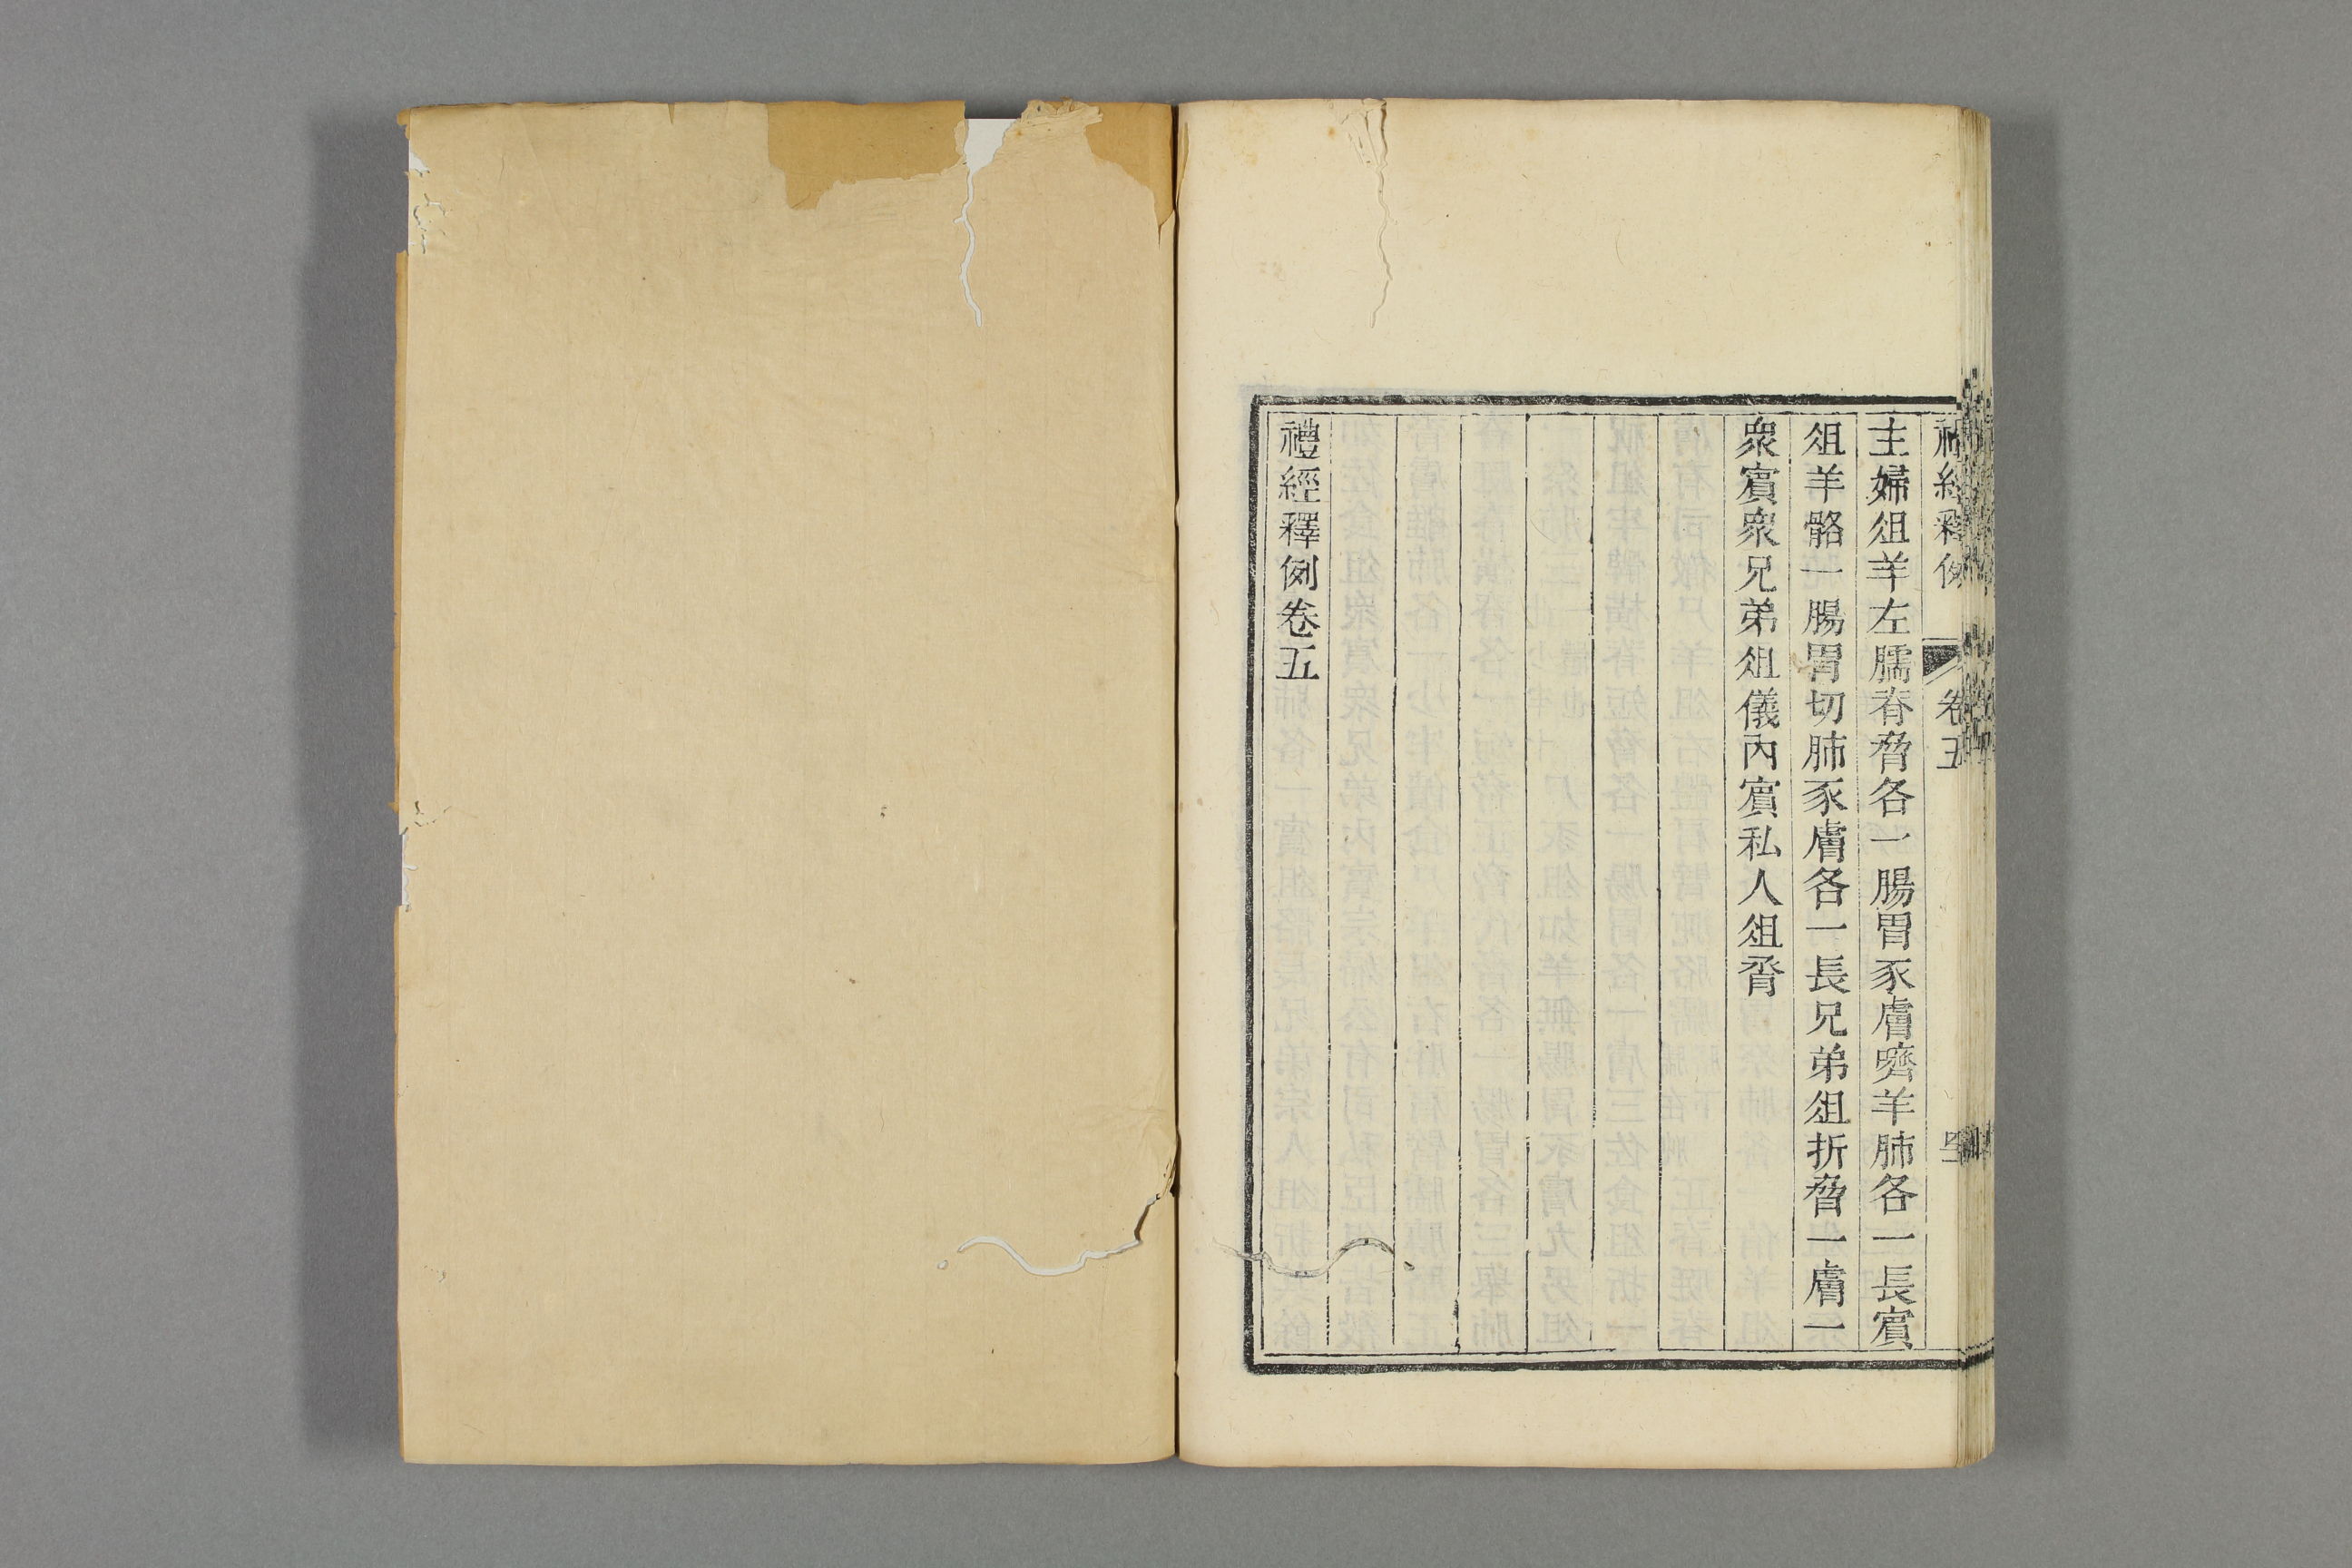 禮經釋例 卷五
主婦俎羊左臑脊脅各一腸胃豕膚嚌羊肺各一長賓
俎羊骼一腸胃切肺豕膚各一長兄弟俎折脅一膚一
衆賓衆兄弟俎儀內賓私人俎脀
禮經釋例卷五